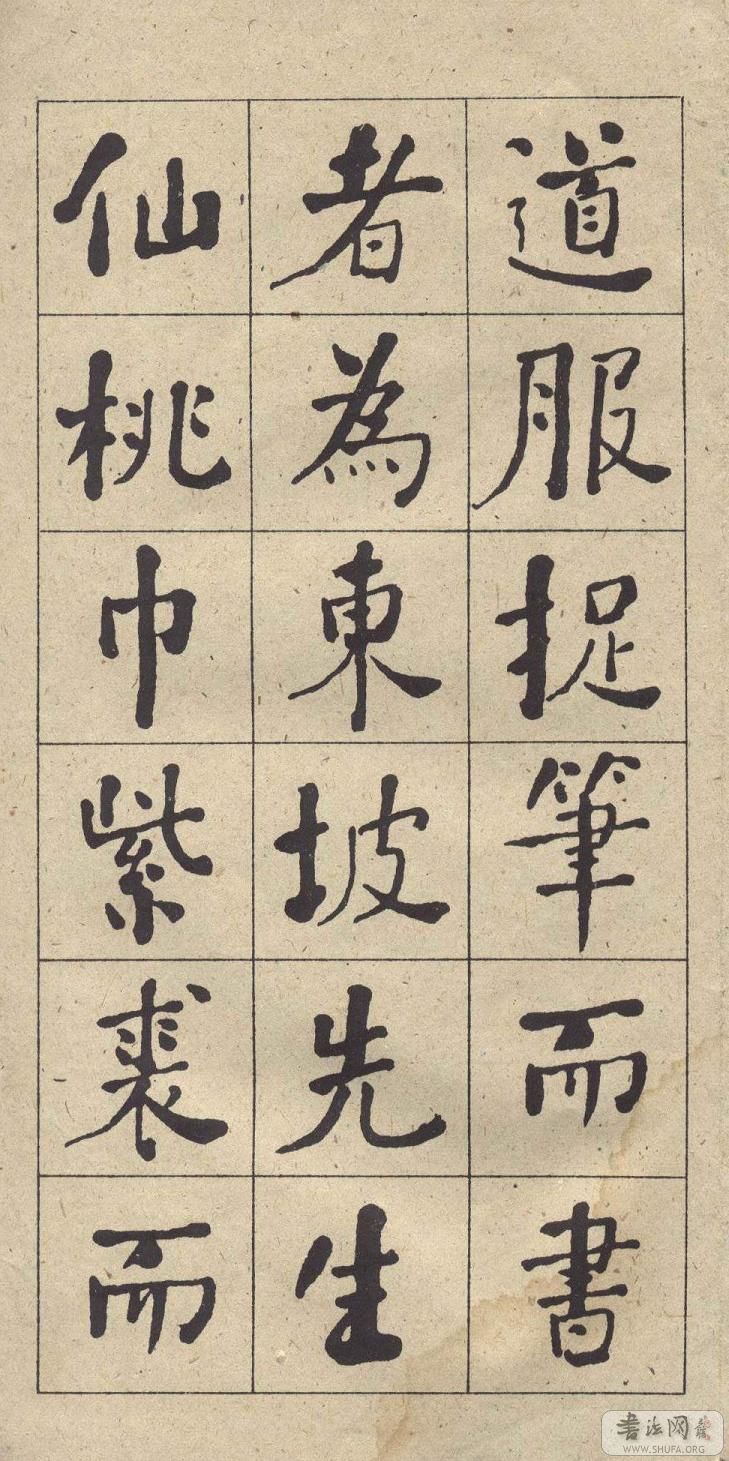 道服捉筆而書
者為東坡先生
仙桃巾紫裘而
書法网
WWW.SHUFA.ORG